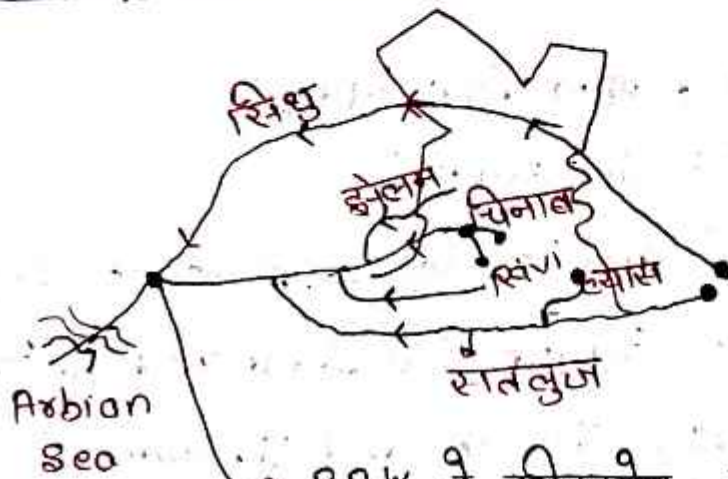 सिंधु
झेलम
चिनाब
रावी
ब्यास
सतलुज
Arbian
Sea